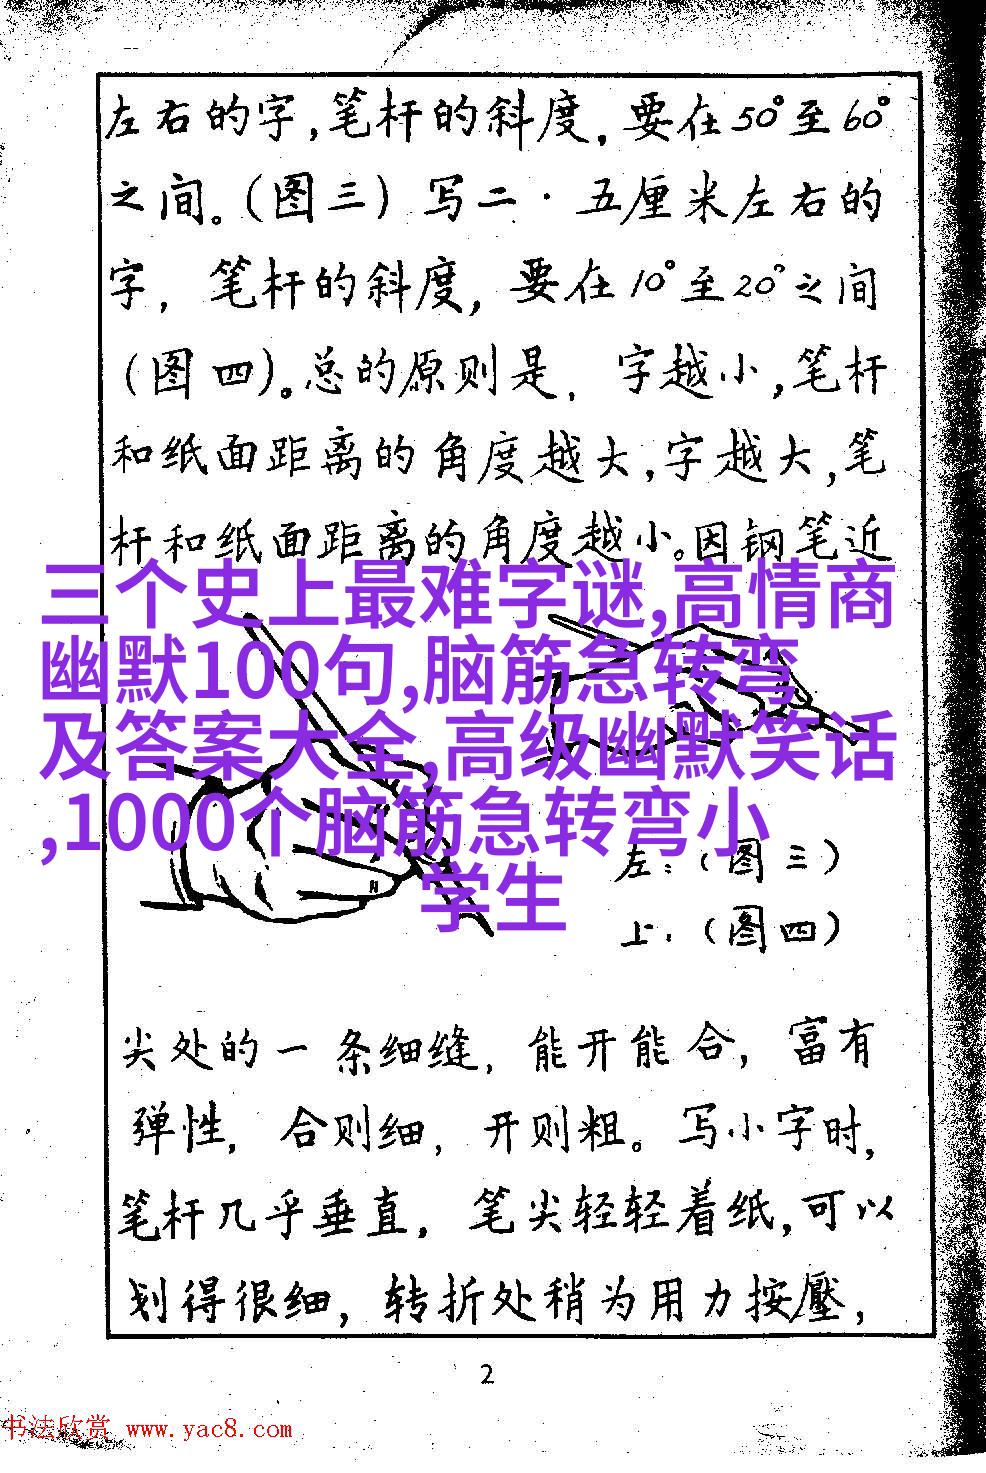 左右的字,笔杆的斜度,要在50°至60°
之间。(图三)写二·五厘米左右的
字,笔杆的斜度,要在10°至20°之间
(图四)。总的原则是,字越小,笔杆
和纸面距离的角度越大,字越大,笔
杆和纸面距离的角度越小。因钢笔近
三个史上最难字谜,高情商
幽默100句,脑筋急转弯
及答案大全,高级幽默笑话
,1000个脑筋急转弯小
学生
左:(图三)
上:(图四)
尖处的一条细缝,能开能合,富有
弹性,合则细,开则粗。写小字时,
笔杆几乎垂直,笔尖轻轻着纸,可以
划得很细,转折处稍为用力按壓,
2
书法欣赏 www.yac8.com